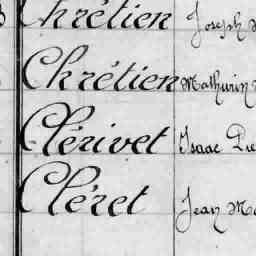 Chrétien Joseph
Chrétien Mathurin
Clérivet Isaac
Cléret Jean